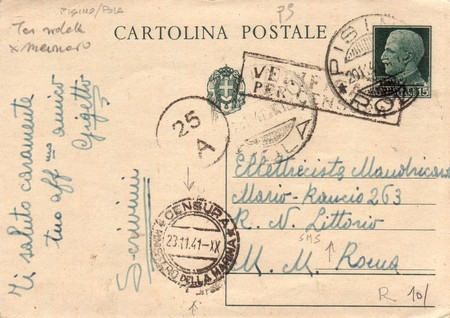 PISINO/POLA
CARTOLINA POSTALE
PISINO
POLA
C. 15
VERIF
PER CEN
25
A
CENSURA
23.11.41-XX
MINISTERO DELLA MARINA
Ellettrecista Mandricar
Mario-Rancio 263
R. N. Littorio
M. M. Roma
SMS
R 10/
Ti saluto caramente
tuo aff mo amico
Gigetto
Scrivimi